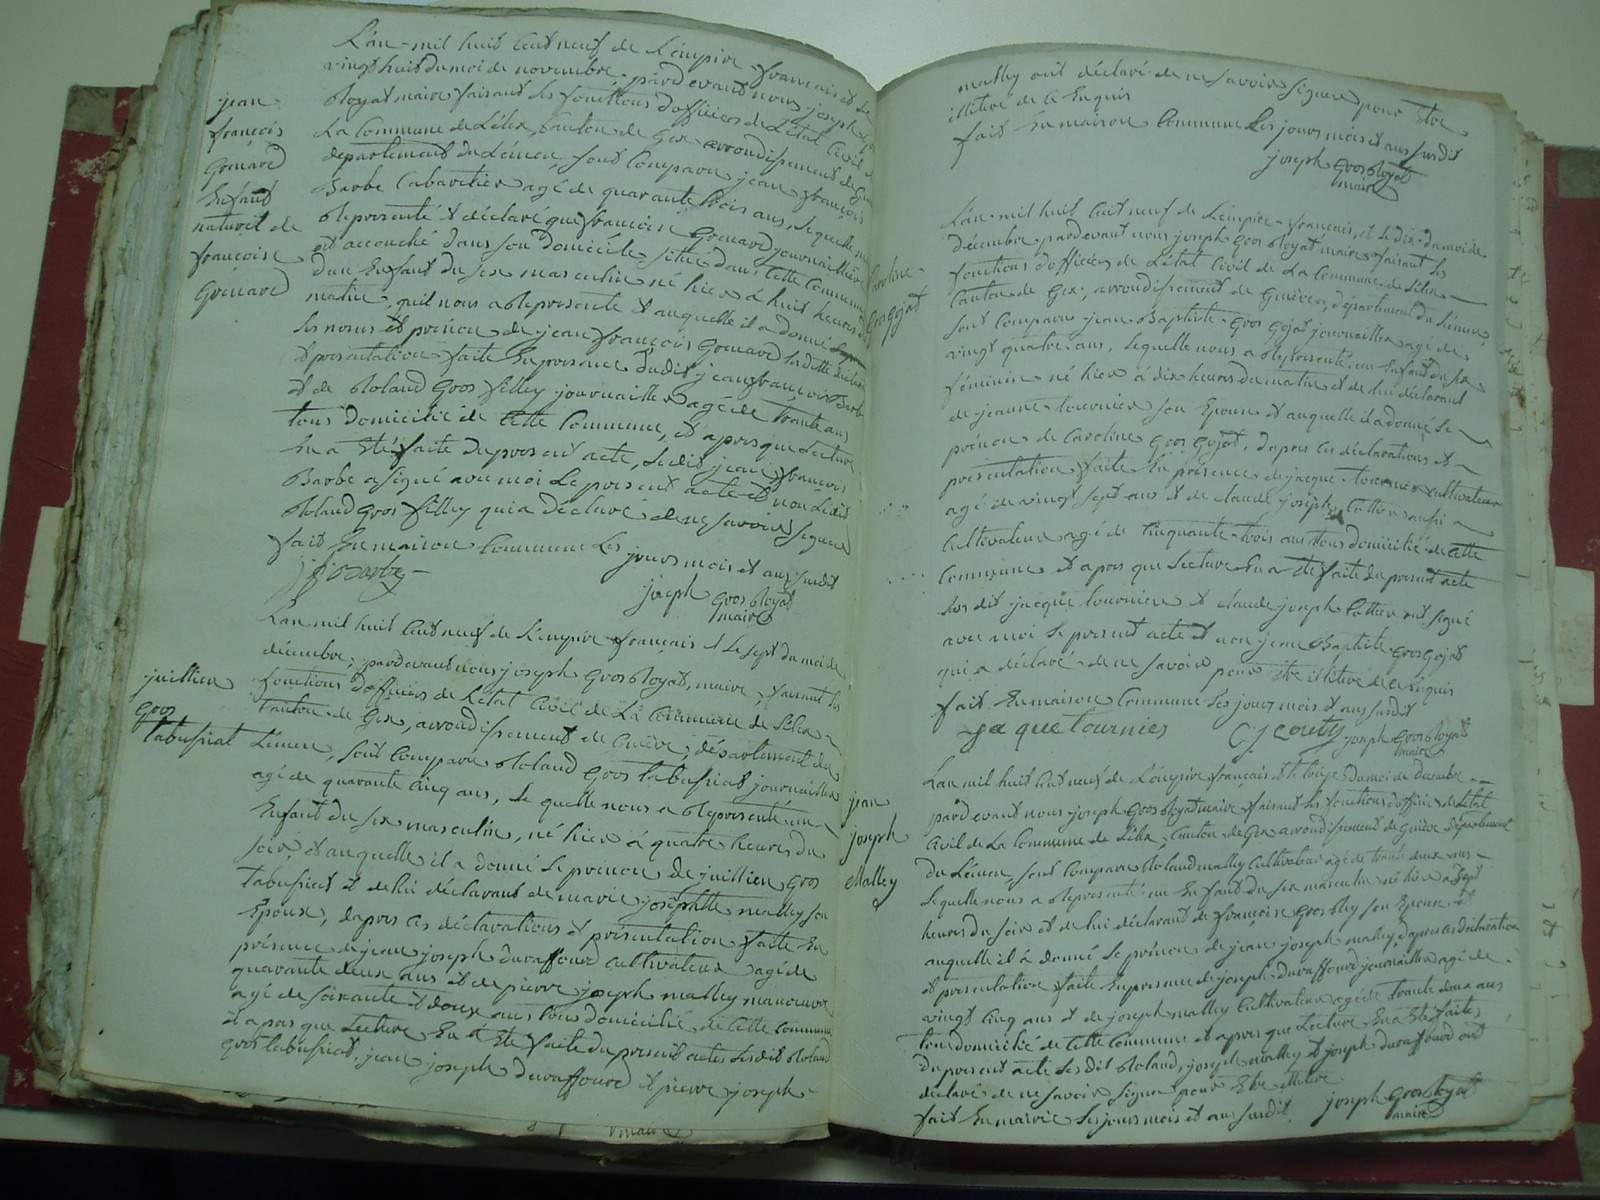 L'an mil huit cent neuf de L'empire francais et le
vingt huit du moi de novembre, pard evant nous joseph gros
Royat maire faisant les fonctions dofficier de L'etat Civil de
La Commune de Lélex, Canton de Gex arrondissement de
département du Léman, sont Comparu jean françois
Barbe Cabaretier agé de quarante trois ans, Lequelle nous
a Représenté et déclaré que françoise Grenard journaillière
est accouché dans son domicile situé dans Cette Commune
d'un Enfant du sex masculin né hier à huit heures du
matin, quil nous a Représenté et auquelle il a donné
les noms et prénon de jean françois Grenard ladette déclaration
et présentation faite En présence dudit jean françois Barbe
et de Roland Gros filley journaillier agé de trante ans
tous domicilié de Cette Commune, et apres que Lecture
En a Eté faite du present acte, Ledit jean françois
Barbe a signé avec moi Le present acte et non Ledit
Roland Gros filley qui a déclaré de ne savoir signer
fait En maison Commune Les jours mois et ans susdit
j f Barbe
joseph gros Royat
maire
jean
françois
Grenard
Enfant
naturel de
françoise
Grenard
L'an mil huit Cent neuf de L'empire français et le sept du moi de
décembre, pard evant nous joseph Gros Royat, maire faisant les
fonctions dofficier de Letat Civil de La Commune de Lélex
Canton de Gex, arrondissement de Genève, département du
Léman, sont Comparu Roland Gros tabussiat journaillier
agé de quarante Cinq ans, Le quelle nous a Représenté un
Enfant du sex masculin, né hier à quatre heures du
soir, et auquelle il a donné Le prenon de juillien Gros
tabussiat et de lui déclarant de marie josephtte malley son
Epouse, dapres Ces déclarations et présentation faite En
présence de jean joseph duraffourd Cultivateur agé de
quarante deux ans et de pierre joseph malley manouvre
agé de soixante et douze ans tous domicilié de Cette Commune
et apres que Lecture En a Eté faite du present actes Lesdit Roland
gros tabussiat, jean joseph duraffourd et pierre joseph
juillien
Gros
tabussiat
malley ont déclaré de ne savoir signer pour Etre
illitéré de Ce Enquis
fait En maison Commune Les jours mois et ans susdit
joseph gros Royat
maire
L'an mil huit Cent neuf de L'empire français, et le dix du moi de
décembre pard evant nous joseph Gros Royat maire faisant les
fonctions dofficier de L'état Civil de La Commune de Lélex
Canton de Gex, arrondissement de Genève, département du Léman,
sont Comparu jean Baptiste Gros Gojat journaillier agé de
vingt quatre ans, Lequelle nous a Représenté un Enfant du sex
féminin né hier à dix heures du matin et de lui déclarant
de jeanne tournier son Epouse et auquelle il a donné Le
prénon de Caroline Gros Gojat, dapres Ces déclarations et
présentation faite En présence de jacque tournier Cultivateur
agé de vingt sept ans et de claude joseph Cottier aussi
Cultivateur agé de Cinquante trois ans tous domicilié de Cette
Commune et apres que Lecture En a Eté faite du present acte
Les dit jacque tournier et claude joseph Cottier ont signé
avec moi Le present acte et non jean Baptiste gros Gojat
qui a déclaré de ne savoir pour Etre illitéré de Ce Enquis
fait En maison Commune Les jours mois et ans susdit
jaque tournier
joseph gros Royat
maire
Caroline
Gros Gojat
L'an mil huit Cent neuf de L'empire français, et le douze du moi de décembre
pard evant nous joseph Gros Royat maire faisant les fonctions dofficier de Létat
Civil de La Commune de Lélex, Canton de Gex arrondissement de Genève département
du Léman, sont Comparu Roland malley Cultivateur agé de trante deux ans
Lequelle nous a Représenté un Enfant du sex masculin né hier a sept
heures du soir et de lui déclarant de françoise gros bley son Epouse et
auquelle il à donné Le prénon de jean joseph malley, dapres Ces déclaration
et présentation faite En presence de joseph duraffourd journaillier agé de
vingt Cinq ans et de joseph malley Cultivateur agé de trante deux ans
tous domicilié de Cette Commune et apres que Lecture En a Eté faite,
du present acte Les dit Roland, joseph malley et joseph duraffourd ont
déclaré de ne savoir signer pour Etre illitéré
fait En mairie Les jours mois et ans susdit
joseph gros Royat
maire
jean
joseph
Malley
maire